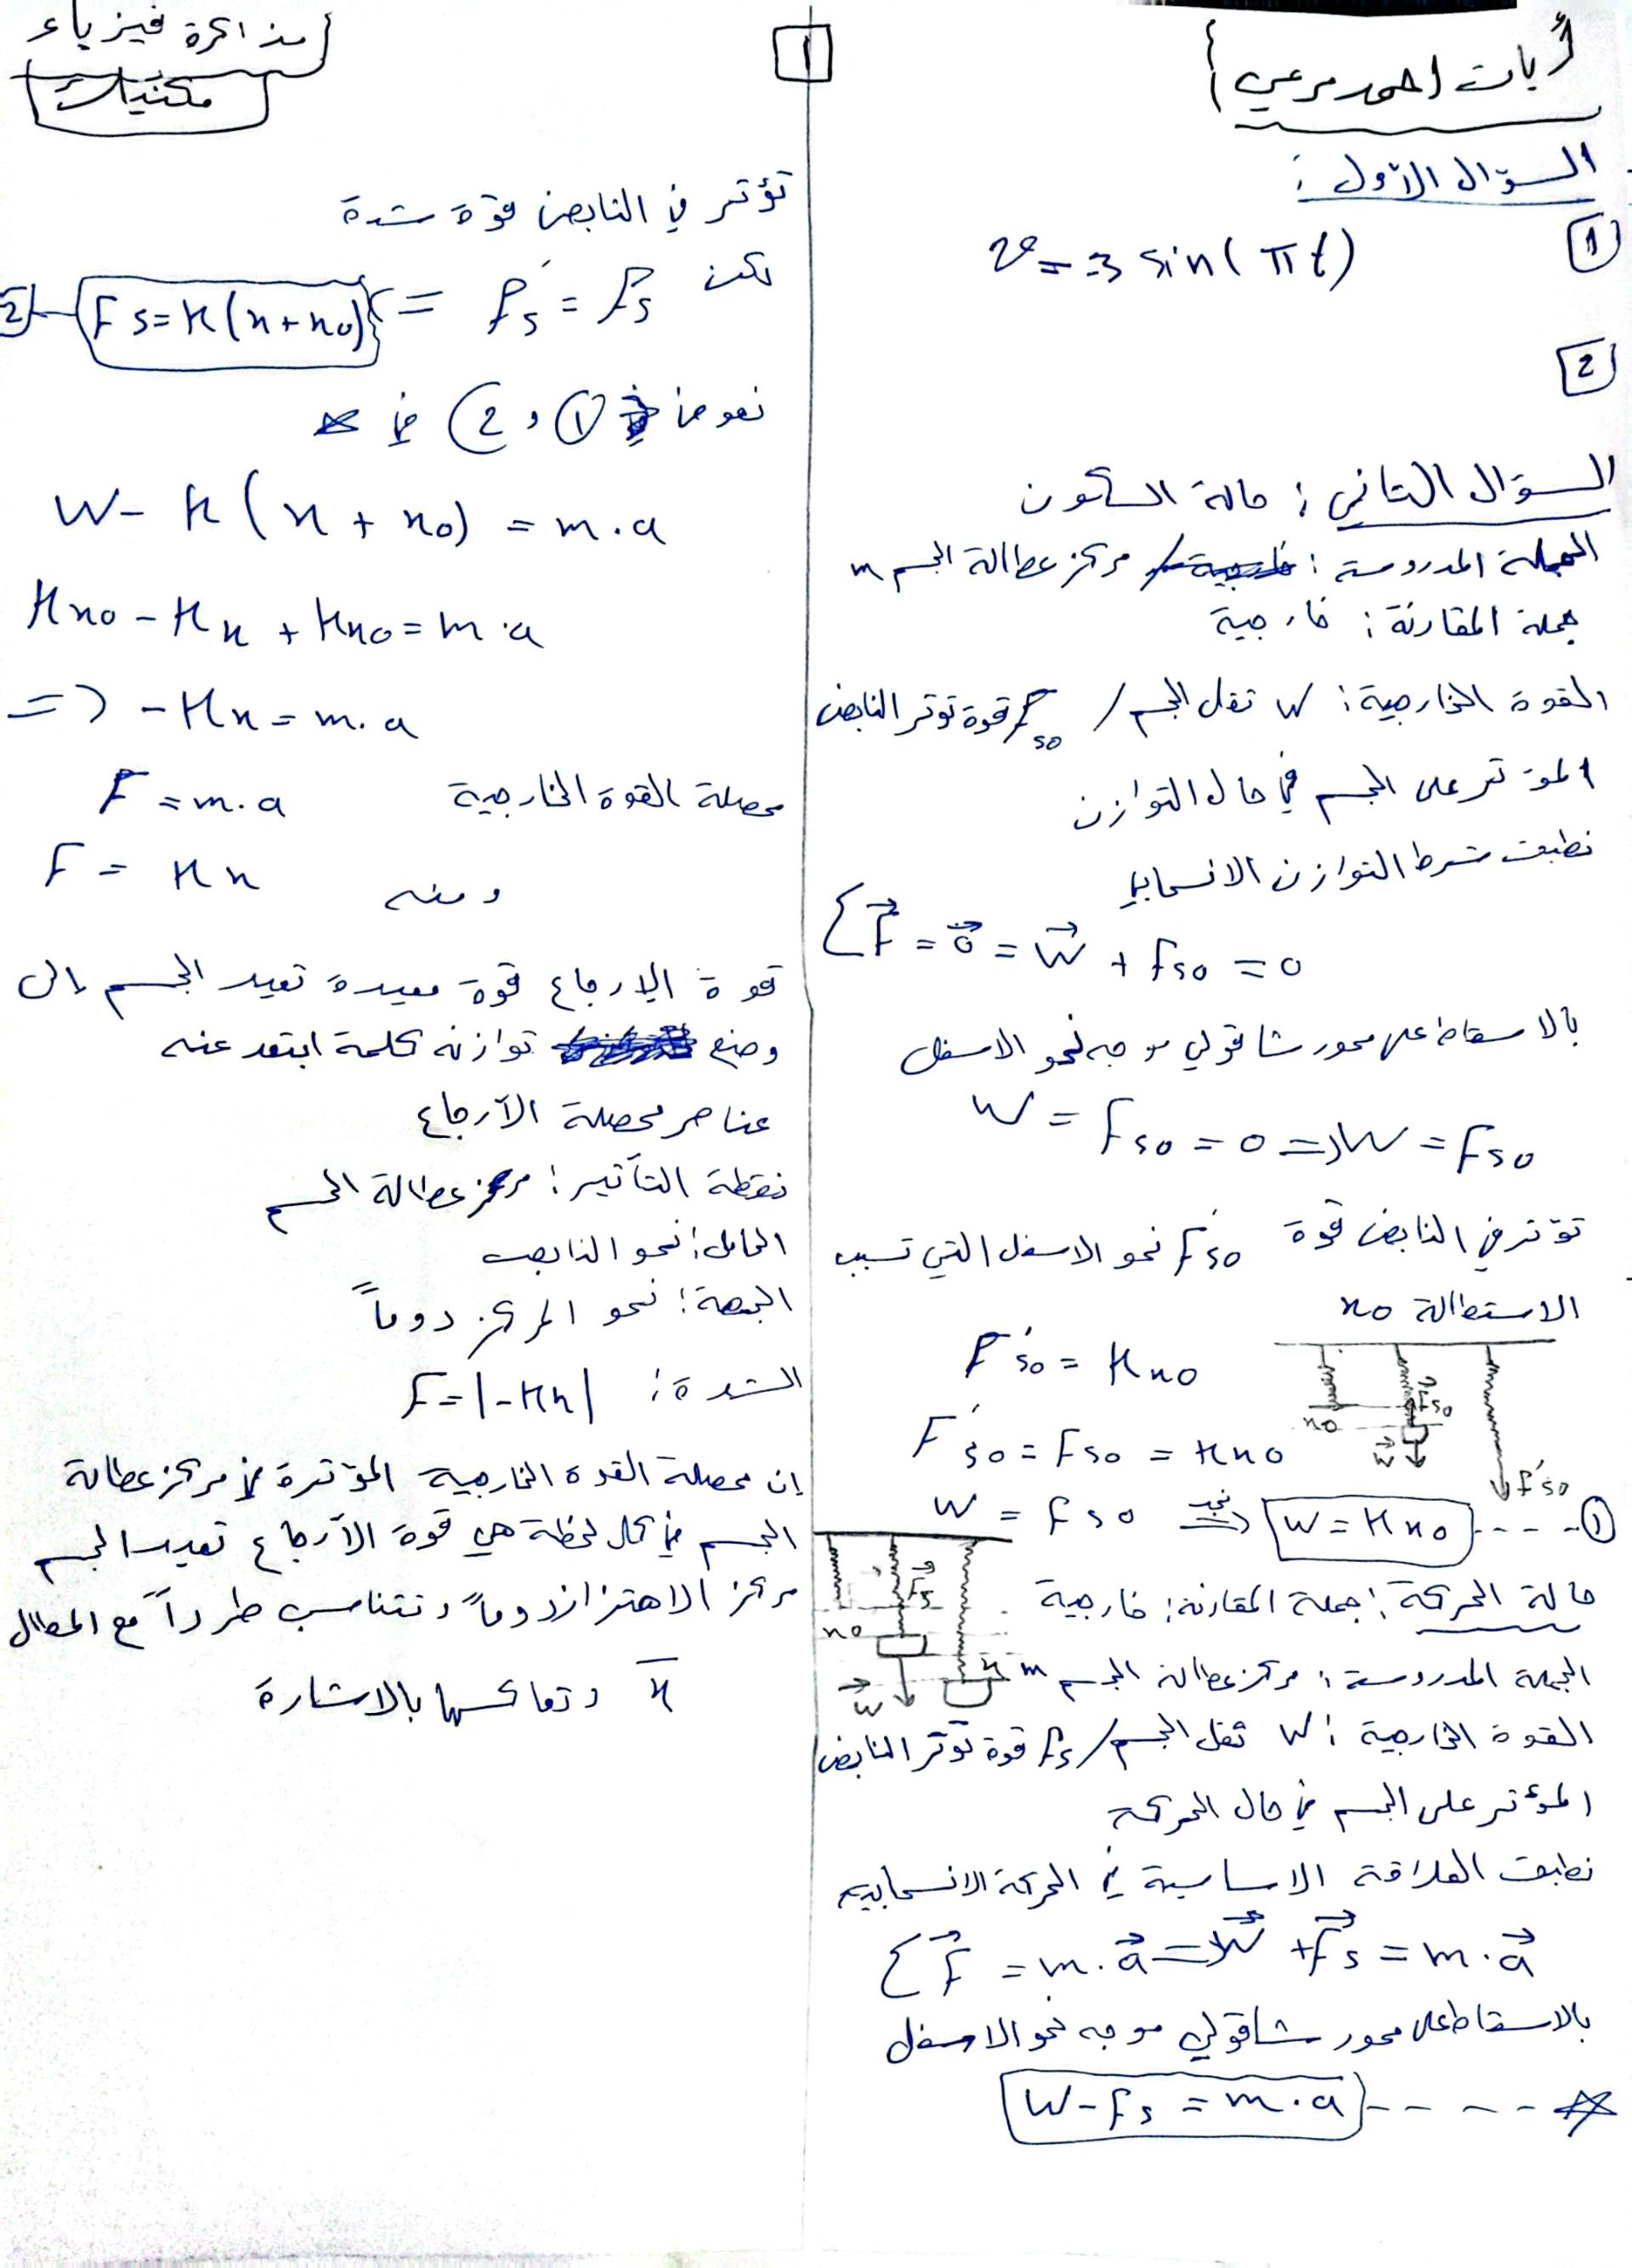 آيات احمد مرعي
1
مذاكرة فيزياء
مكنيك
السؤال الأول :
1 v = -3 sin(πt)
2
السؤال الثاني : حالة السكون
الجملة المدروسة : مركز عطالة الجسم m
جملة المقارنة : خارجية
القوة الخارجية : W ثقل الجسم / Fso قوة توتر النابض
المؤثر على الجسم في حال التوازن
نطبق شرط التوازن الانسحابي
Σ F = 0 = W + Fso = 0
بالاسقاط على محور شاقولي موجه نحو الاسفل
W = Fso = 0 => W = Fso
تؤثر في النابض قوة F'so نحو الاسفل التي تسبب
الاستطالة xo
F'so = Kxo
xo
Fso
W
F'so
F'so = Fso = Kxo
W = Fso نجد => W = Kxo ---- 1
حالة الحركة : جملة المقارنة : خارجية
الجملة المدروسة : مركز عطالة الجسم m
Fs
xo
x
W
القوة الخارجية : W ثقل الجسم / Fs قوة توتر النابض
المؤثر على الجسم في حال الحركة
نطبق العلاقة الاساسية في الحركة الانسحابية
Σ F = m.a => W + Fs = m.a
بالاسقاط على محور شاقولي موجه نحو الاسفل
W - Fs = m.a ---- ☆
تؤثر في النابض قوة شدة
لكن F's = Fs = Fs = K(x+xo) 2
نعوض 1 و 2 في ☆
W - K(x + xo) = m.a
Kxo - Kx + Kxo = m.a
=> -Kx = m.a
محصلة القوة الخارجية F = m.a
ومنه F = Kx
قوة الإرجاع قوة معيدة تعيد الجسم إلى
وضع توازنه كلمة ابتعد عنه
عناصر محصلة الآرجاع
نقطة التأثير : مركز عطالة الجسم
الحامل : نحو النابض
الجهة : نحو المركز دوماً
الشدة : F = |-Kx|
إن محصلة القوة الخارجية المؤثرة في مركز عطالة
الجسم في كل لحظة هي قوة الآرجاع تعيد الجسم
مركز الاهتزاز دوماً وتتناسب طرداً مع المطال
x وتعاكسها بالاشارة